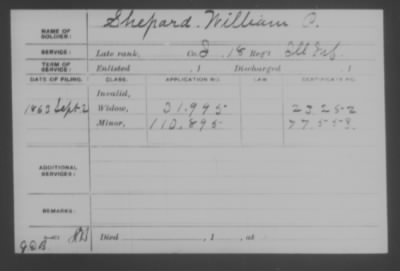 NAME OF SOLDIER: Shepard, William P.
SERVICE: Late rank, Co. D, 18 Reg't Ill Inf.
TERM OF SERVICE: Enlisted , 1 Discharged , 1
DATE OF FILING. CLASS. APPLICATION NO. LAW. CERTIFICATE NO.
Invalid,
1863 Sept. 2 Widow, 31.995 23.252
Minor, 110.895 77.553
ADDITIONAL SERVICES:
REMARKS:
Died , 1 , at